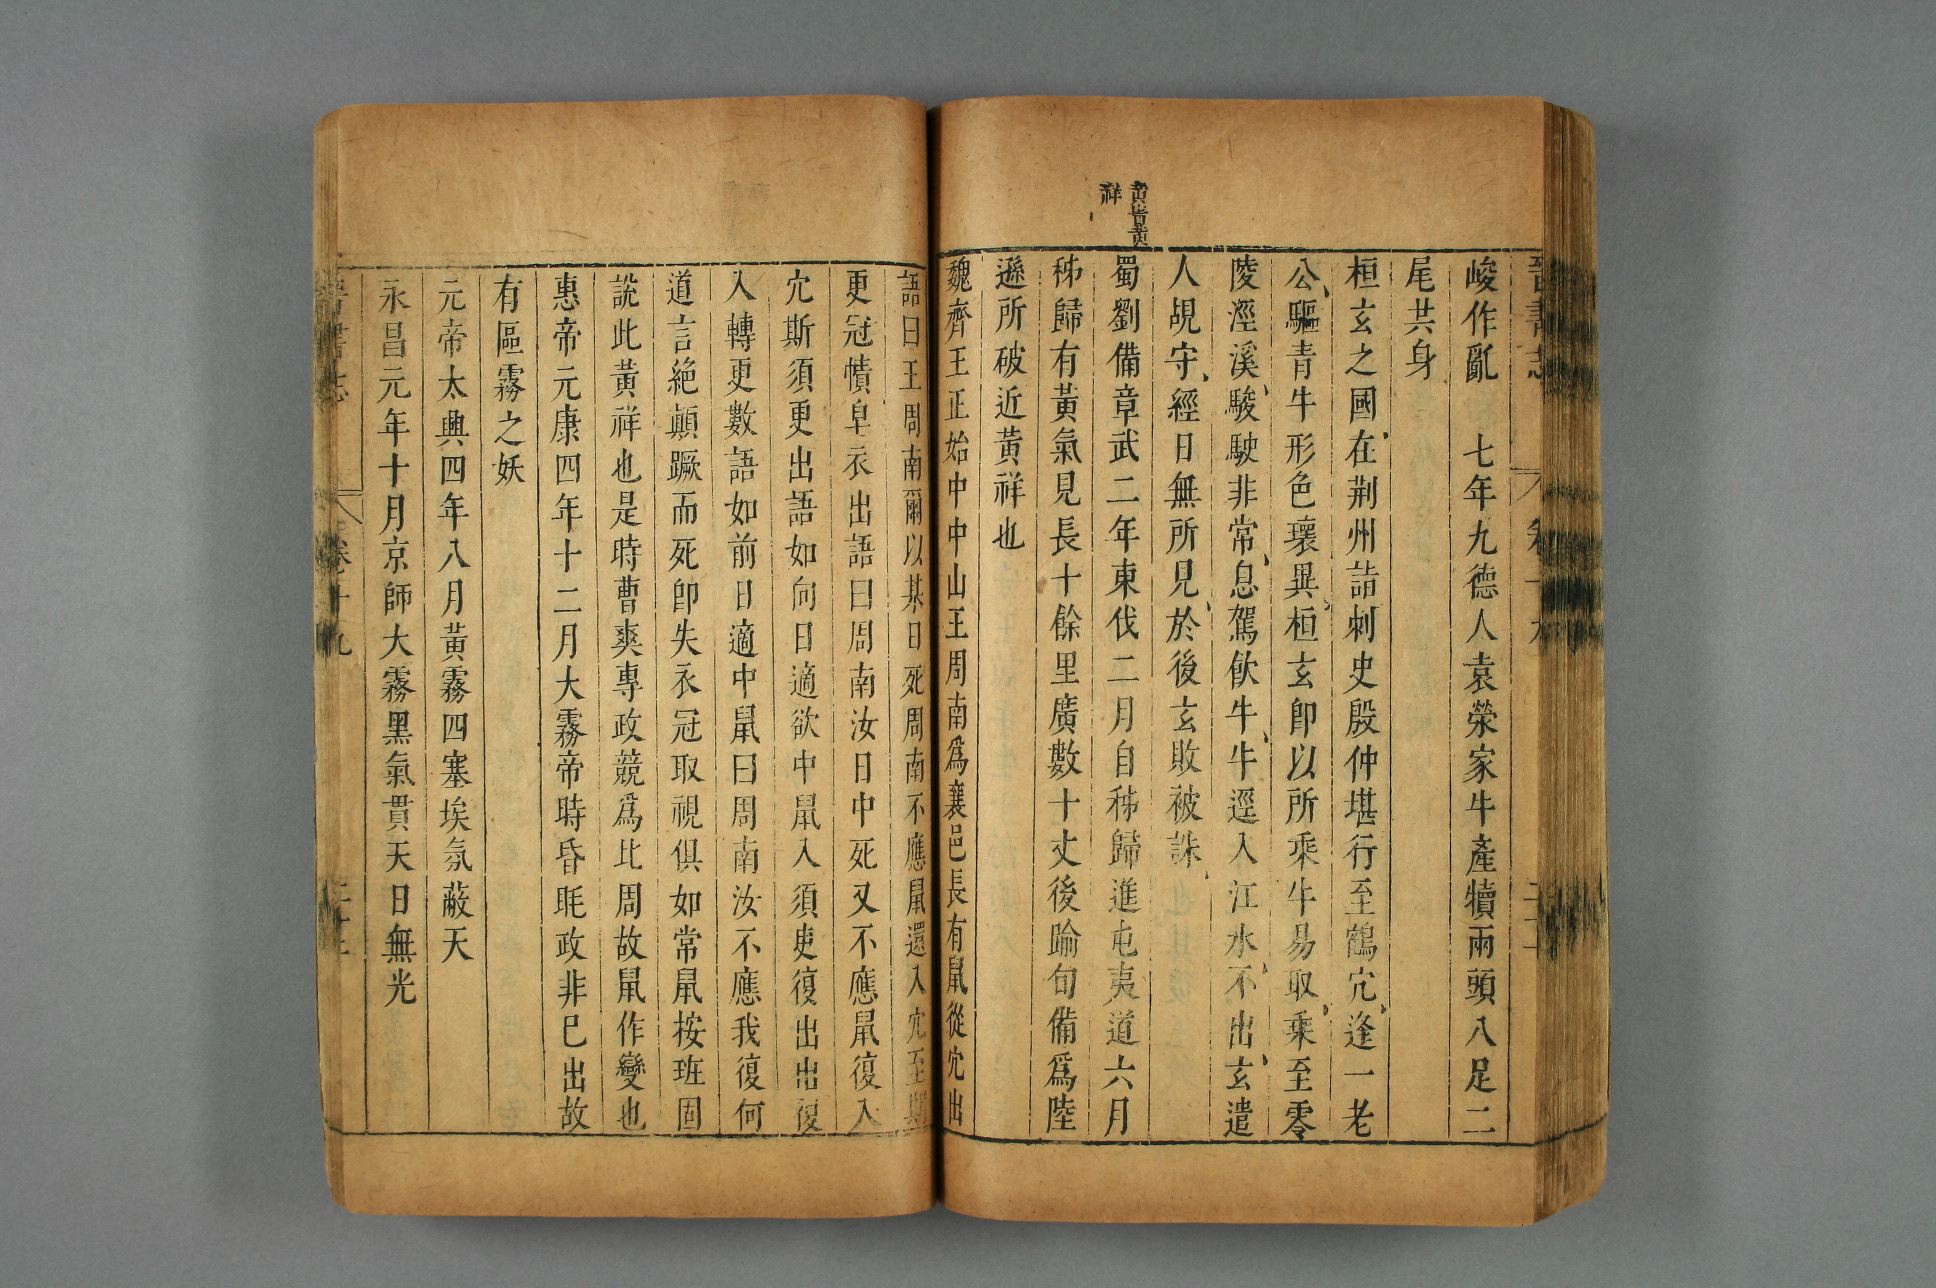 黃眚黃
祥
晉書志
卷十九
峻作亂　七年九德人袁榮家牛產犢兩頭八足二
尾共身
桓玄之國在荆州詣刺史殷仲堪行至鶴穴逢一老
公驅青牛形色瓌異桓玄卽以所乘牛易取乘至零
陵涇溪駿駛非常息駕飮牛牛逕入江水不出玄遣
人覘守經日無所見於後玄敗被誅
蜀劉備章武二年東伐二月自秭歸進屯夷道六月
秭歸有黃氣見長十餘里廣數十丈後踰旬備爲陸
遜所破近黃祥也
魏齊王正始中中山王周南爲襄邑長有鼠從穴出
語曰王周南爾以某日死周南不應鼠還入穴至期
更冠幘皁衣出語曰周南汝日中死又不應鼠復入
穴斯須更出語如向日適欲中鼠入須臾復出出復
入轉更數語如前日適中鼠曰周南汝不應我復何
道言絶顚蹶而死卽失衣冠取視俱如常鼠按班固
說此黃祥也是時曹爽專政競爲比周故鼠作變也
惠帝元康四年十二月大霧帝時昏眊政非己出故
有區霧之妖
元帝太興四年八月黃霧四塞埃氛蔽天
永昌元年十月京師大霧黑氣貫天日無光
晉書志
卷十九